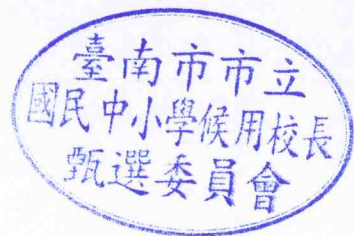 臺南市市立
國民中小學候用校長
甄選委員會